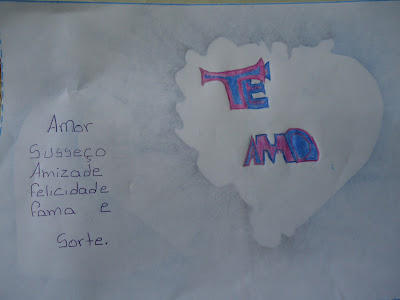 Amor
Susseço
Amizade
felicidade
fama e
Sorte.
TE
AMO